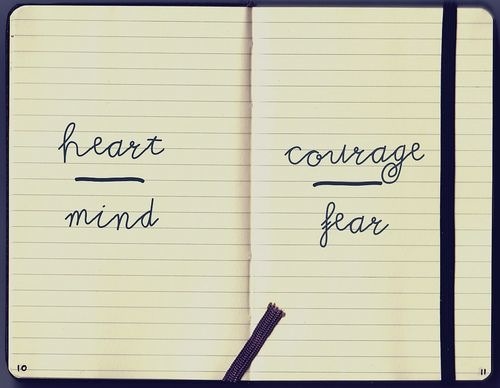 heart
mind
10
courage
fear
11